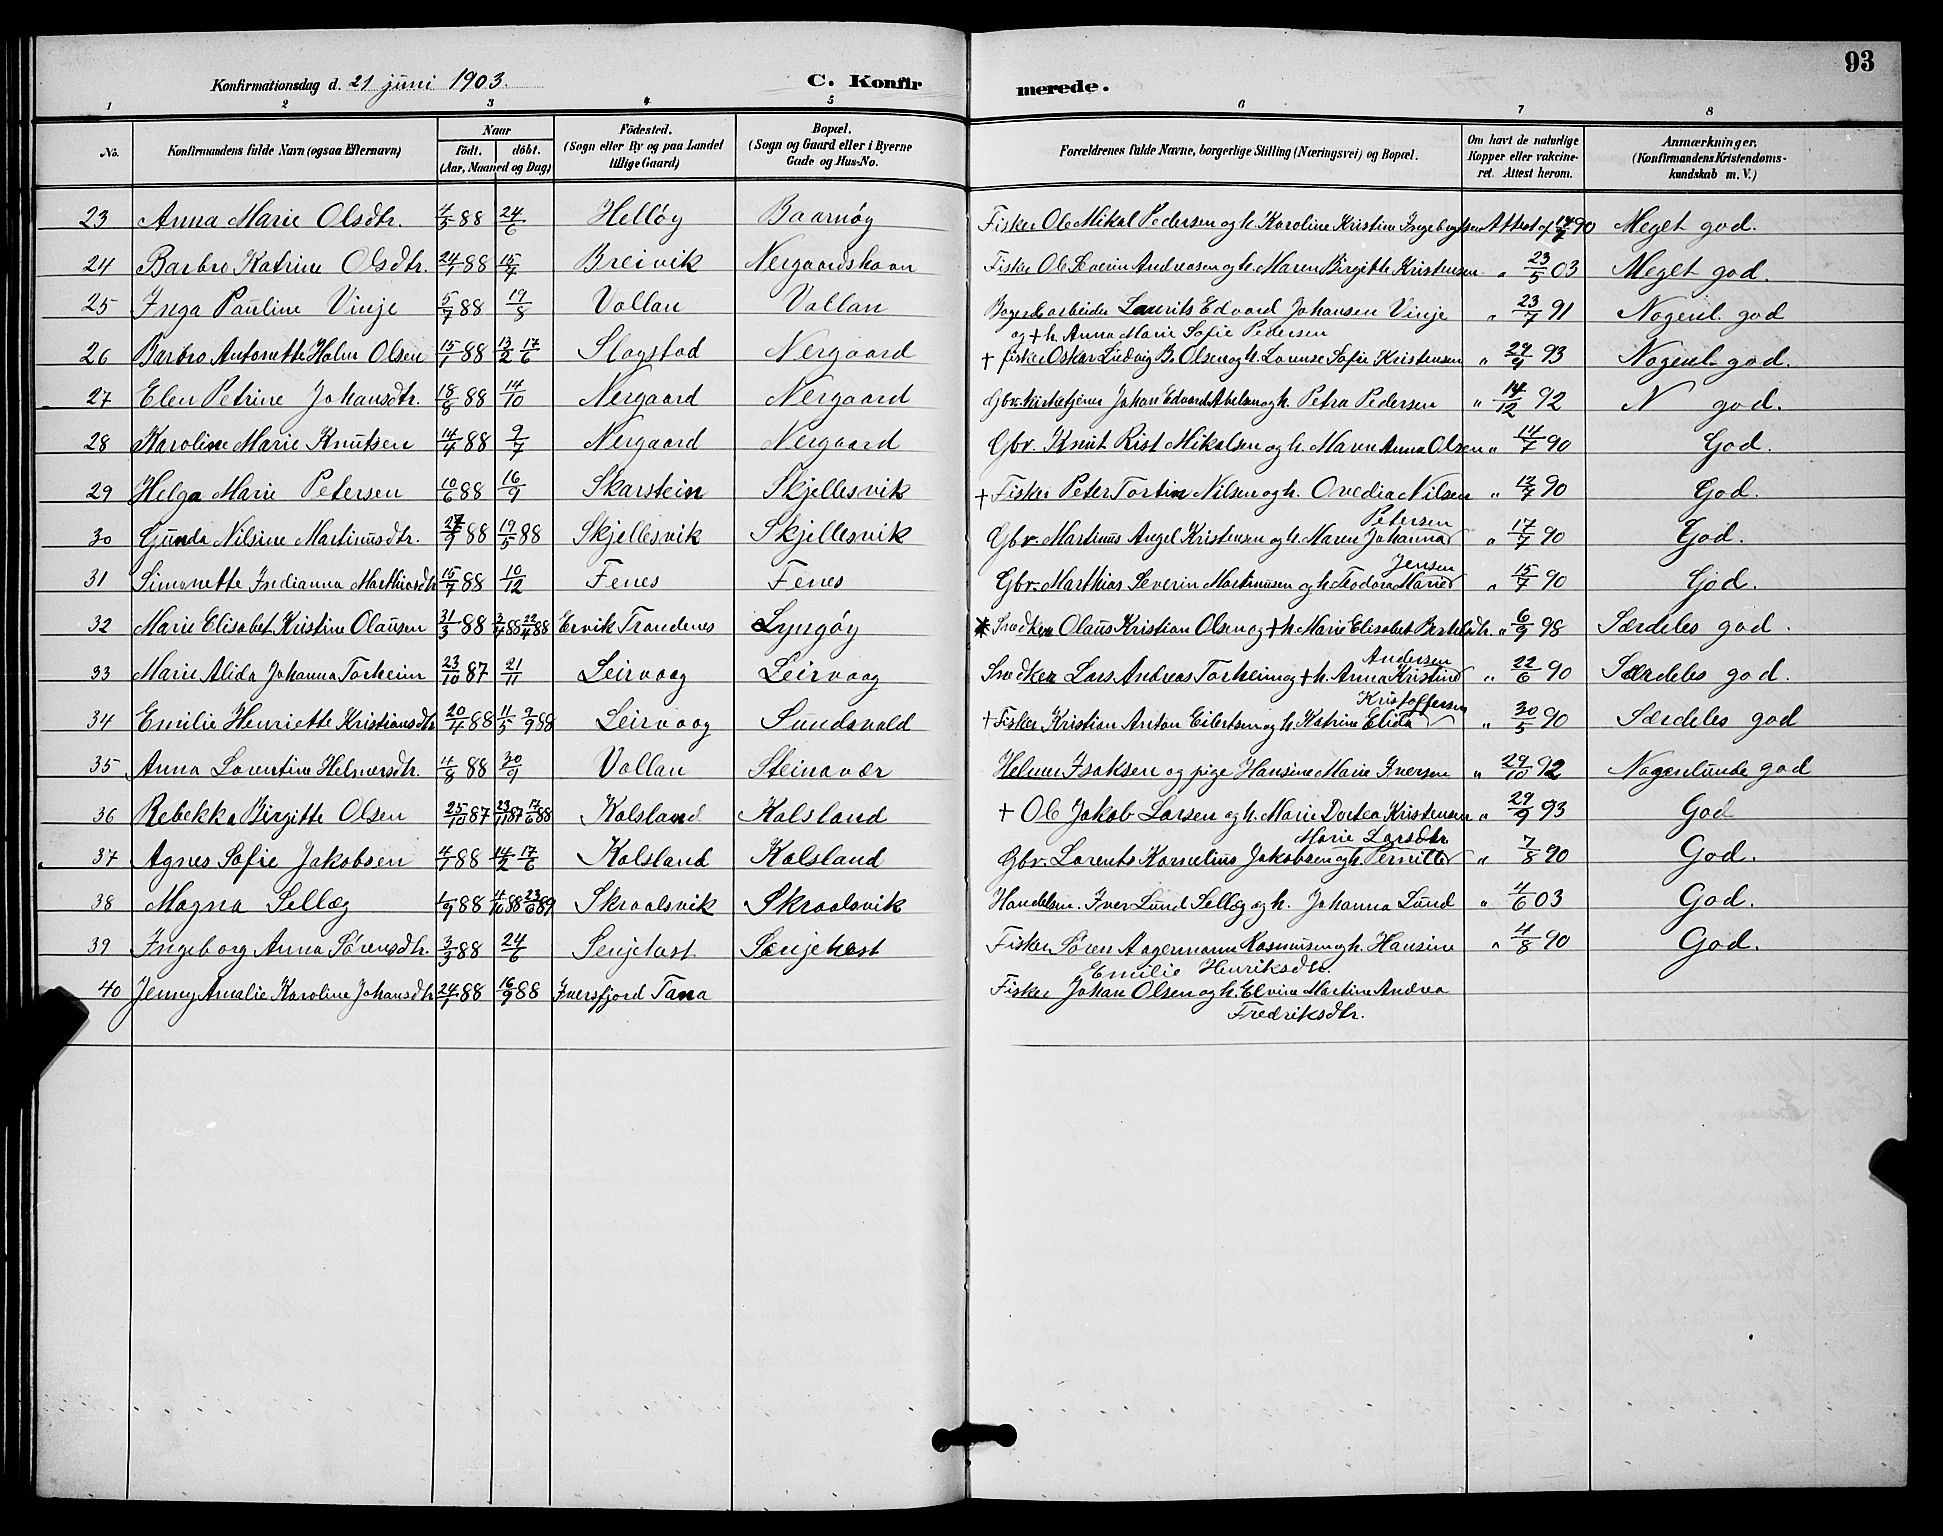 93
Konfirmationsdag d. 21 juni 1903. C. Konfirmerede.
1 2 3 4 5 6 7 8
No. Konfirmandens fulde Navn (ogsaa Efternavn) Naar født. døbt. (Aar, Maaned og Dag) Fødested. (Sogn eller By og paa Landet tillige Gaard) Bopæl. (Sogn og Gaard eller i Byerne Gade og Hus-No.) Forældrenes fulde Navne, borgerlige Stilling (Næringsvei) og Bopæl. Om havt de naturlige Kopper eller vakcineret. Attest herom. Anmærkninger. (Konfirmandens Kristendomskundskab m. V.)
23 Anna Marie Olsdtr. 4/5 88 24/6 Helløy Baarnøy Fisker Ole Mikal Pedersen og h. Karoline Kristine Ingebrigtsen Attest af 90 Meget god.
24 Barbro Katrine Olsdtr. 24/1 88 15/4 Breivik Nergaardshavn Fisker Ole Severin Andreasen og h. Maren Birgitte Kristensen " 23/5 03 Meget god.
25 Inga Pauline Vinje 5/7 88 19/8 Vollan Vollan Laurits Edvard Johansen Vinje " 23/7 91 Nogenl. god
og + h. Anna Marie Sofie Pedersen
26 Barbro Antonette Holm Olsen 15/1 88 13/2 17/6 Slagstad Nergaard + fisker Oskar Ludvig B. Olsen og h. Lovise Sofie Kristensen " 29/9 93 Nogenl. god.
27 Elen Petrine Johansdtr. 18/8 88 14/10 Nergaard Nergaard Gbr. kirketjener Johan Edvard Abelsen og h. Petra Pedersen " 14/12 92 N god.
28 Karoline Marie Knutsen 14/4 88 9/7 Nergaard Nergaard Gbr. Knut Rist Mikalsen og h. Maren Anna Olsen " 14/7 90 God.
29 Helga Marie Petersen 10/6 88 16/9 Skarstein Skjellesvik + Fisker Peter Tortin Nilsen og h. Ovedia Nilsen " 12/7 90 God.
Petersen
30 Gunda Nilsine Martinusdtr. 88 19/5 88 Skjellesvik Skjellesvik Gbr. Martinus Angel Kristensen og h. Maren Johanna " 17/7 90 God.
Jensen
31 Simonette Indianna Marthiasdtr 15/7 88 10/12 Fenes Fenes Gbr. Marthias Severin Martinusen og h. Teodora Marie " 15/7 90 God.
32 Marie Elisabet Kristine Olausen 31/3 88 3/4 88 22/4 88 Ervik Trondenes Lyngøy Snedker Olaus Kristian Olsen og + h. Marie Elisabet Bertelsdtr. " 6/9 98 Særdeles god.
Andersen
33 Marie Alida Johanna Torheim 23/10 87 21/11 Leirvaag Leirvaag Snedker Lars Andreas Torheim og + h. Anna Kristine " 22/6 90 Særdeles god.
Kristoffersen
34 Emilie Henriette Kristiansdtr 20/4 88 11/5 9/9 88 Leirvaag Sundsvold + Fisker Kristian Anton Eilertsen og h. Katrine Elida " 30/5 90 Særdeles god
35 Anna Lorentine Helmersdtr. 11/8 88 30/9 Vollan Steinavær Helmer Isaksen og pige Hansine Marie Iversen " 29/10 92 Nogenlunde god
36 Rebekka Birgitte Olsen 25/10 87 23/11 87 17/6 88 Kalsland Kalsland + Ole Jakob Larsen og h. Marie Dortea Kristensen " 29/9 93 God
Marie Larsdtr.
37 Agnes Sofie Jakobsen 4/1 88 14/2 17/6 Kalsland Kalsland Gbr. Lorents Kornelius Jakobsen og h. Pernille " 7/8 90 God.
38 Magna Sellæg 1/9 88 4/10 88 23/6 89 Skraalsvik Skraalsvik Handelsm. Iver Lund Sellæg og h. Johanna Lund " 4/6 03 God.
39 Ingeborg Anna Sørensdtr. 3/3 88 24/6 Senjehest Senjehest Fisker Søren Aagermann Rasmusen og h. Hansine " 4/8 90 God.
Emilie Henriksdtr.
40 Jenny Amalie Karoline Johansdtr 24/1 88 16/9 88 Iversfjord Tana Fisker Johan Olsen og h. Elvine Martine Andrea
Fredriksdtr.